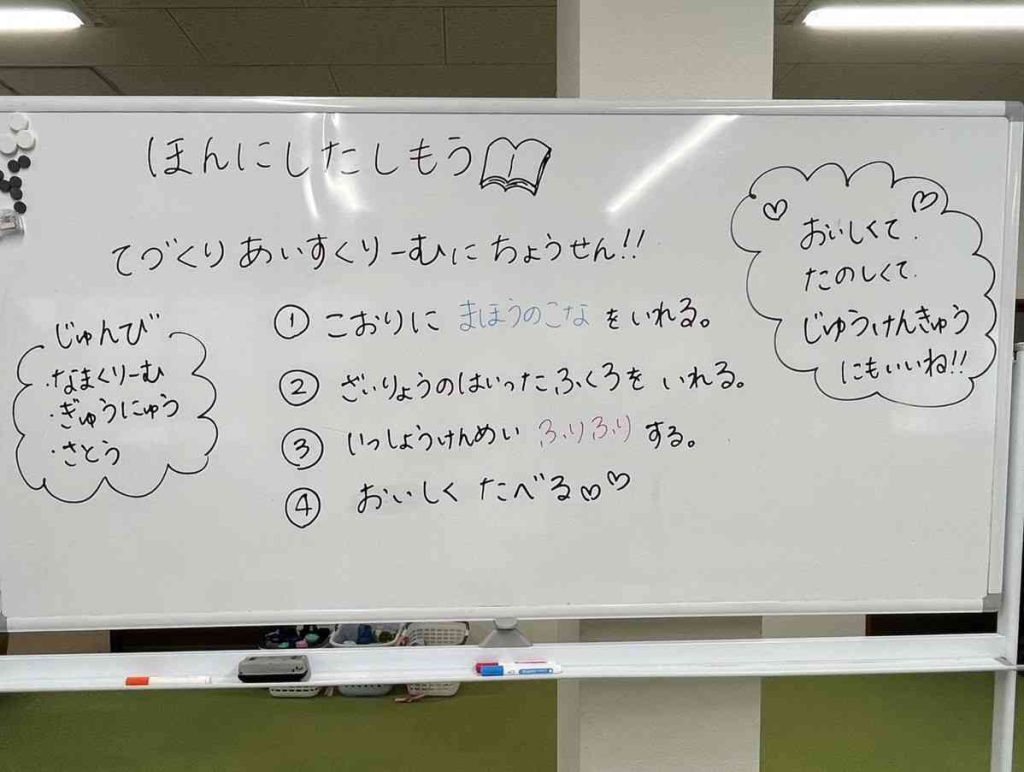 ほんにしたしもう
てづくりあいすくりーむにちょうせん!!
じゅんび
・なまくりーむ
・ぎゅうにゅう
・さとう
① こおりに まほうのこな をいれる。
② ざいりょうのはいったふくろを いれる。
③ いっしょうけんめい ふりふり する。
④ おいしく たべる♡♡
おいしくて.
たのしくて.
じゆうけんきゅう
にもいいね!!